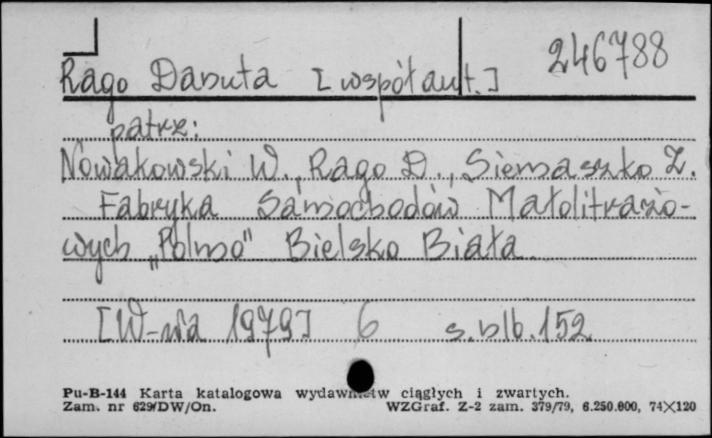 246788
Rago Danuta [współaut.]
patrz:
Nowakowski W., Rago D., Siemaszko Z.
Fabryka Samochodów Małolitrażo-
wych „Polmo" Bielsko Biała
[W-wa 1979] 6 s.nlb.152
Pu-B-144 Karta katalogowa wydawnictw ciągłych i zwartych.
Zam. nr 629/DW/On. WZGraf. Z-2 zam. 379/79, 6.250.000, 74×120